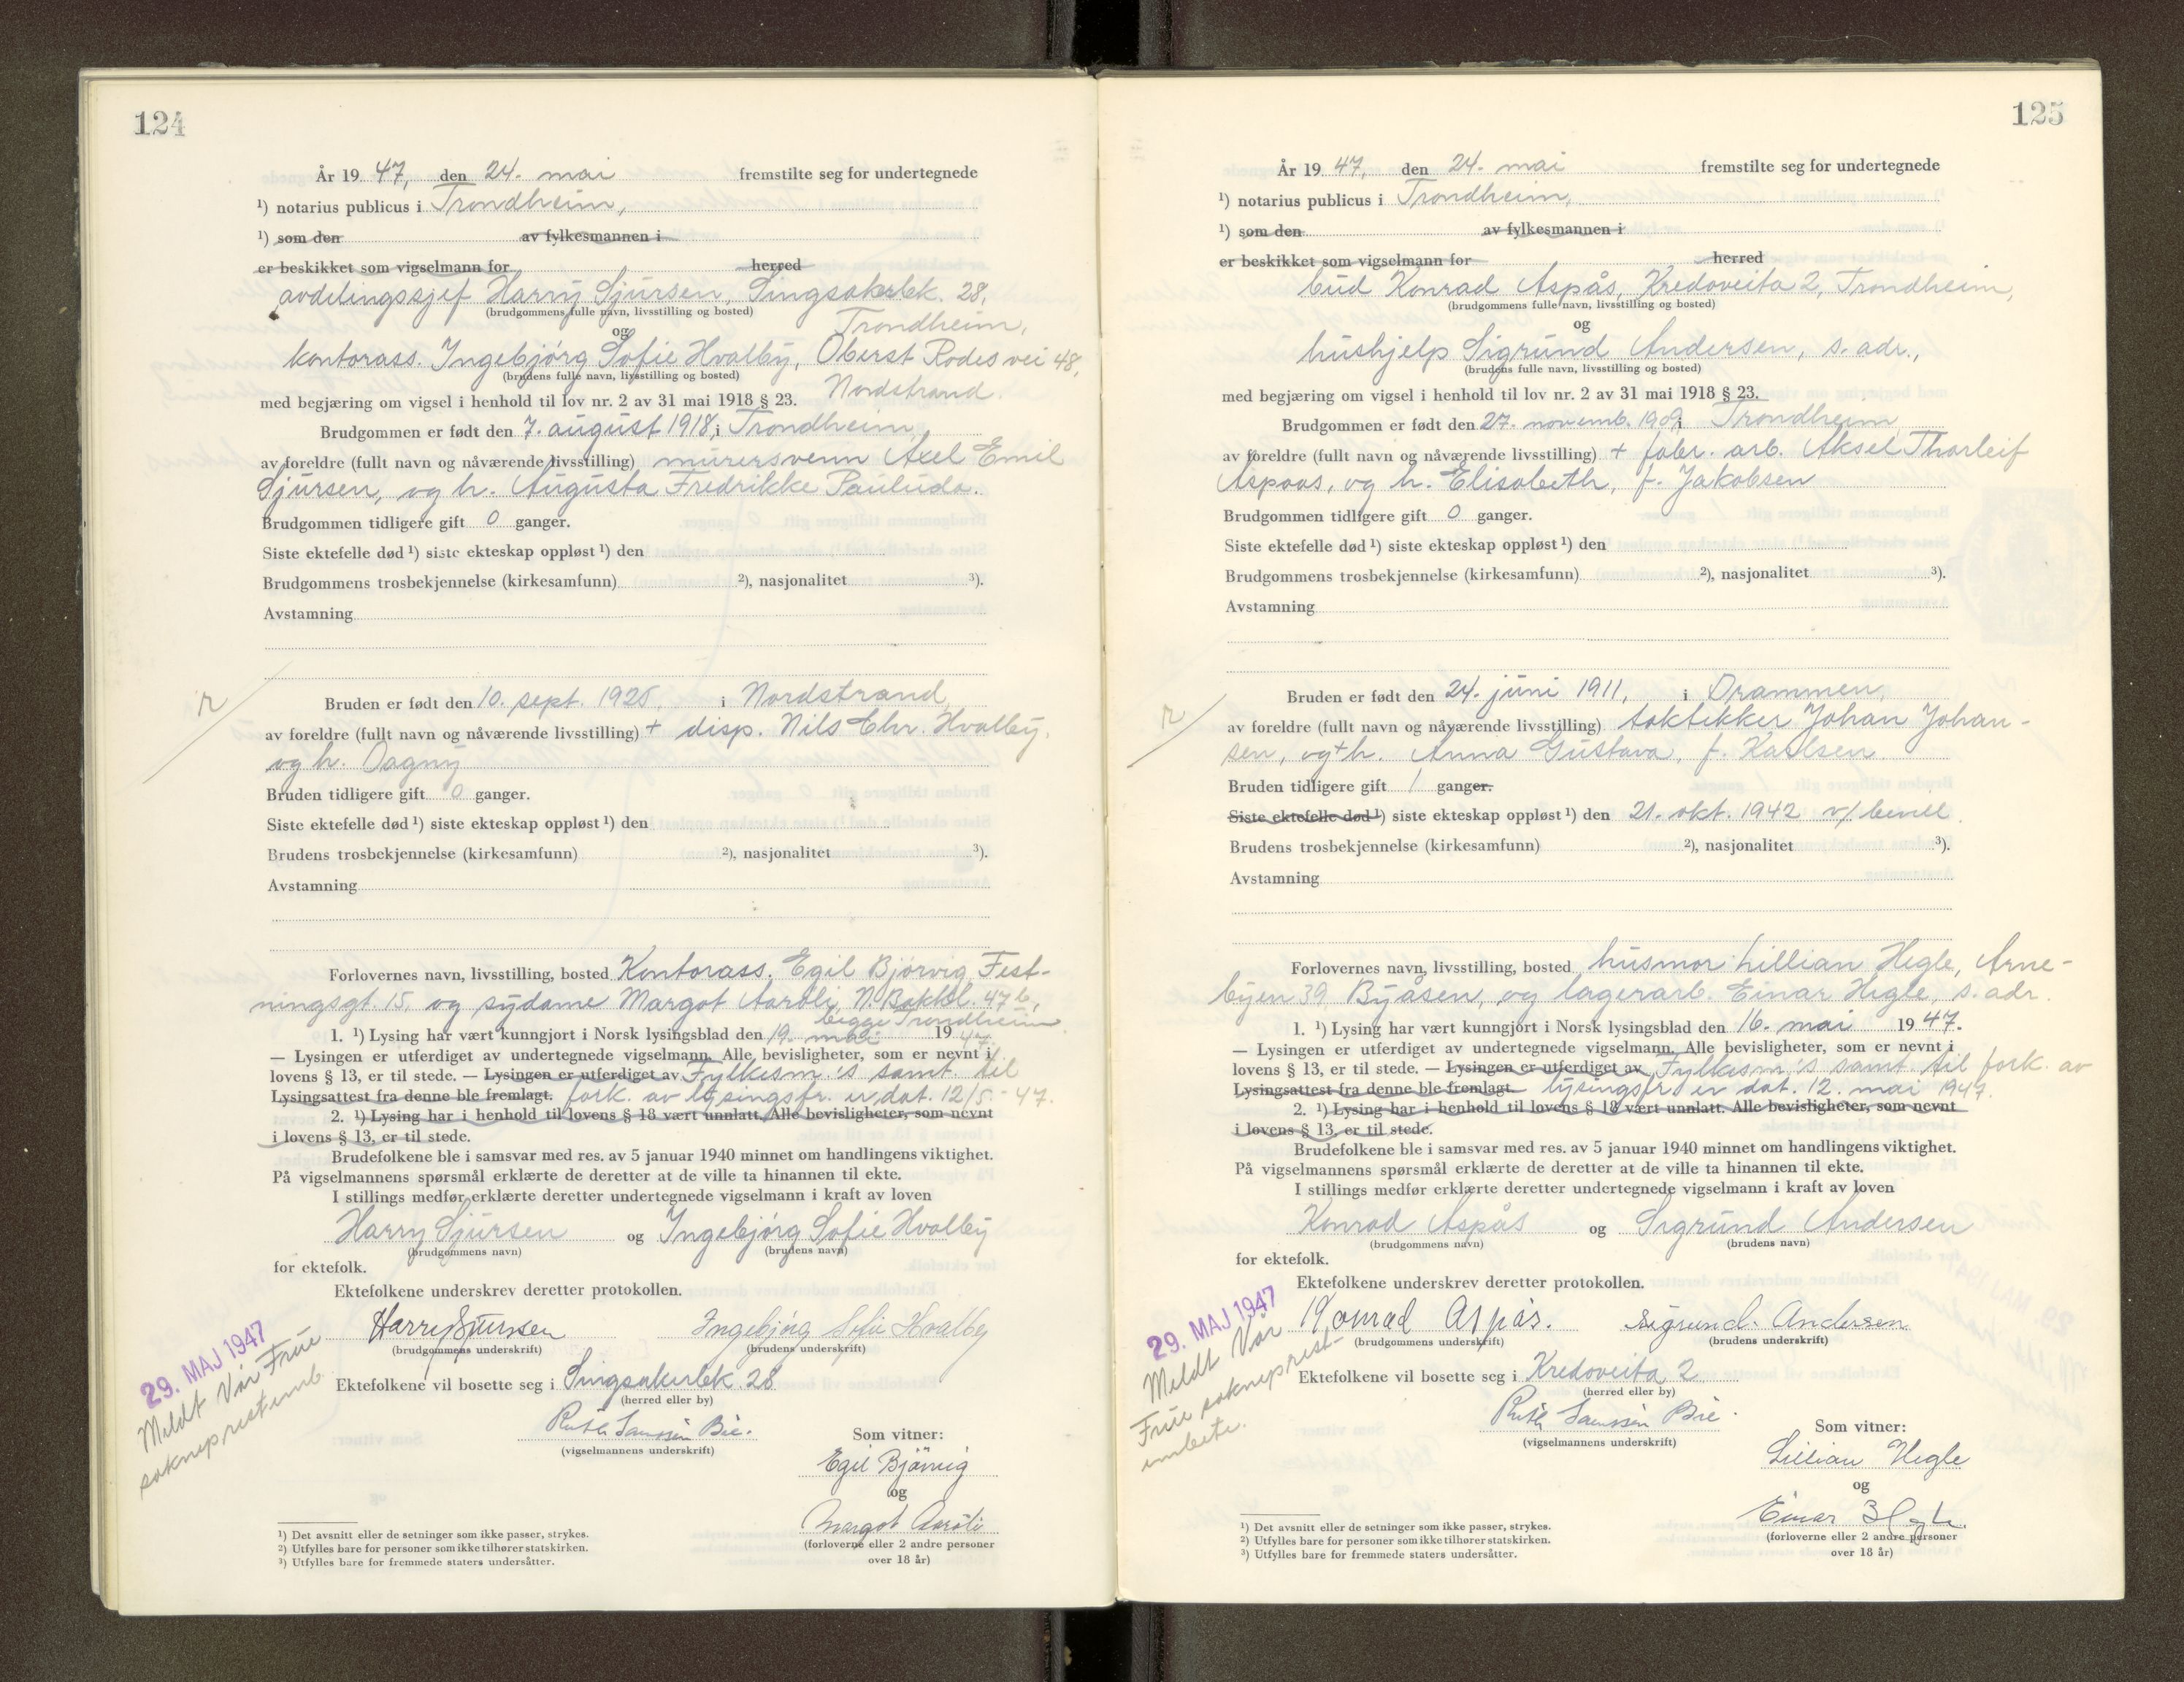 124
År 19 47, den 24. mai fremstilte seg for undertegnede
¹) notarius publicus i Trondheim,
¹) som den av fylkesmannen i
er beskikket som vigselmann for herred
avdelingssjef Harry Sjursen, Singsakerbk. 28,
(brudgommens fulle navn, livsstilling og bosted)
Trondheim,
og
kontorass. Ingebjørg Sofie Hvalby, Oberst Rodes vei 48,
(brudens fulle navn, livsstilling og bosted)
Nordstrand.
med begjæring om vigsel i henhold til lov nr. 2 av 31 mai 1918 § 23.
Brudgommen er født den 7. august 1918, i Trondheim,
av foreldre (fullt navn og nåværende livsstilling) murersvenn Axel Emil
Sjursen, og h. Augusta Fredrikke
Brudgommen tidligere gift 0 ganger.
Siste ektefelle død ¹) siste ekteskap oppløst ¹) den
Brudgommens trosbekjennelse (kirkesamfunn) ²), nasjonalitet ³).
Avstamning
Bruden er født den 10. sept. i Nordstrand,
av foreldre (fullt navn og nåværende livsstilling) + disp. Nils Chr. Hvalby,
og h. Dagny
Bruden tidligere gift 0 ganger.
Siste ektefelle død ¹) siste ekteskap oppløst ¹) den
Brudens trosbekjennelse (kirkesamfunn) ²), nasjonalitet ³).
Avstamning
Forlovernes navn, livsstilling, bosted Kontorass. Egil Bjørvig, Fest-
ningsgt. 15, og sydame Margot Aarøli, N. Bakkl. 47 b,
begge Trondheim
1. ¹) Lysing har vært kunngjort i Norsk lysingsblad den 19. mai 19 47.
— Lysingen er utferdiget av undertegnede vigselmann. Alle bevisligheter, som er nevnt i
lovens § 13, er til stede. — Lysingen er utferdiget av Fylkesm.'s samt. til
Lysingsattest fra denne ble fremlagt. fork. av lysingsfr. er dat. 12/5 - 47.
2. ¹) Lysing har i henhold til lovens § 18 vært unnlatt. Alle bevisligheter, som nevnt
i lovens § 13, er til stede.
Brudefolkene ble i samsvar med res. av 5 januar 1940 minnet om handlingens viktighet.
På vigselmannens spørsmål erklærte de deretter at de ville ta hinannen til ekte.
I stillings medfør erklærte deretter undertegnede vigselmann i kraft av loven
Harry Sjursen og Ingebjørg Sofie Hvalby
(brudgommens navn) (brudens navn)
for ektefolk.
Ektefolkene underskrev deretter protokollen.
Harry Sjursen Ingebjørg Sofie Hvalby
(brudgommens underskrift) (brudens underskrift)
29. MAJ 1947
Meldt Vår Frue
sokneprestemb.
Ektefolkene vil bosette seg i Singsakerbk. 28
(herred eller by)
(vigselmannens underskrift)
Som vitner:
Egil Bjørvig
og
Margot Aarøli
(forloverne eller 2 andre personer
over 18 år)
¹) Det avsnitt eller de setninger som ikke passer, strykes.
²) Utfylles bare for personer som ikke tilhører statskirken.
³) Utfylles bare for fremmede staters undersåtter.
125
År 19 47, den 24. mai fremstilte seg for undertegnede
¹) notarius publicus i Trondheim,
¹) som den av fylkesmannen i
er beskikket som vigselmann for herred
bud Konrad Aspås, Kredoveita 2, Trondheim,
(brudgommens fulle navn, livsstilling og bosted)
og
hushjelp Sigrund Andersen, s. adr.,
(brudens fulle navn, livsstilling og bosted)
med begjæring om vigsel i henhold til lov nr. 2 av 31 mai 1918 § 23.
Brudgommen er født den 27. novemb. 1909, i Trondheim
av foreldre (fullt navn og nåværende livsstilling) + fabr. arb. Aksel Thorleif
Aspaas, og h. Elisabeth, f. Jakobsen
Brudgommen tidligere gift 0 ganger.
Siste ektefelle død ¹) siste ekteskap oppløst ¹) den
Brudgommens trosbekjennelse (kirkesamfunn) ²), nasjonalitet ³).
Avstamning
Bruden er født den 24. juni 1911, i Drammen,
av foreldre (fullt navn og nåværende livsstilling) taktekker Johan Johan-
sen, og + h. Anna Gustava, f. Karlsen.
Bruden tidligere gift 1 ganger.
Siste ektefelle død ¹) siste ekteskap oppløst ¹) den 21. okt. 1942 v/ bevill.
Brudens trosbekjennelse (kirkesamfunn) ²), nasjonalitet ³).
Avstamning
Forlovernes navn, livsstilling, bosted husmor Lillian Hegle, Arne-
byen 39 Byåsen, og lagerarb. Einar Hegle, s. adr.
1. ¹) Lysing har vært kunngjort i Norsk lysingsblad den 16. mai 19 47.
— Lysingen er utferdiget av undertegnede vigselmann. Alle bevisligheter, som er nevnt i
lovens § 13, er til stede. — Lysingen er utferdiget av Fylkesm.'s samt. til fork. av
Lysingsattest fra denne ble fremlagt. lysingsfr. er dat. 12. mai 1947.
2. ¹) Lysing har i henhold til lovens § 18 vært unnlatt. Alle bevisligheter, som nevnt
i lovens § 13, er til stede.
Brudefolkene ble i samsvar med res. av 5 januar 1940 minnet om handlingens viktighet.
På vigselmannens spørsmål erklærte de deretter at de ville ta hinannen til ekte.
I stillings medfør erklærte deretter undertegnede vigselmann i kraft av loven
Konrad Aspås og Sigrund Andersen
(brudgommens navn) (brudens navn)
for ektefolk.
Ektefolkene underskrev deretter protokollen.
Konrad Aspås. Sigrund Andersen
(brudgommens underskrift) (brudens underskrift)
29. MAJ 1947
Meldt Vår
Frue sokneprest-
embete.
Ektefolkene vil bosette seg i Kredoveita 2
(herred eller by)
(vigselmannens underskrift)
Som vitner:
Lillian Hegle
og
Einar Hegle
(forloverne eller 2 andre personer
over 18 år)
¹) Det avsnitt eller de setninger som ikke passer, strykes.
²) Utfylles bare for personer som ikke tilhører statskirken.
³) Utfylles bare for fremmede staters undersåtter.